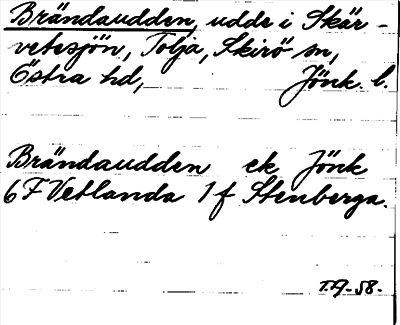 Brändaudden, udde i Skär-
vetesjön, Tolja, Skirö sn,
Östra hd, Jönk. l.
Brändaudden ek Jönk
6F Vetlanda 1f Stenberga.
T.A-58.